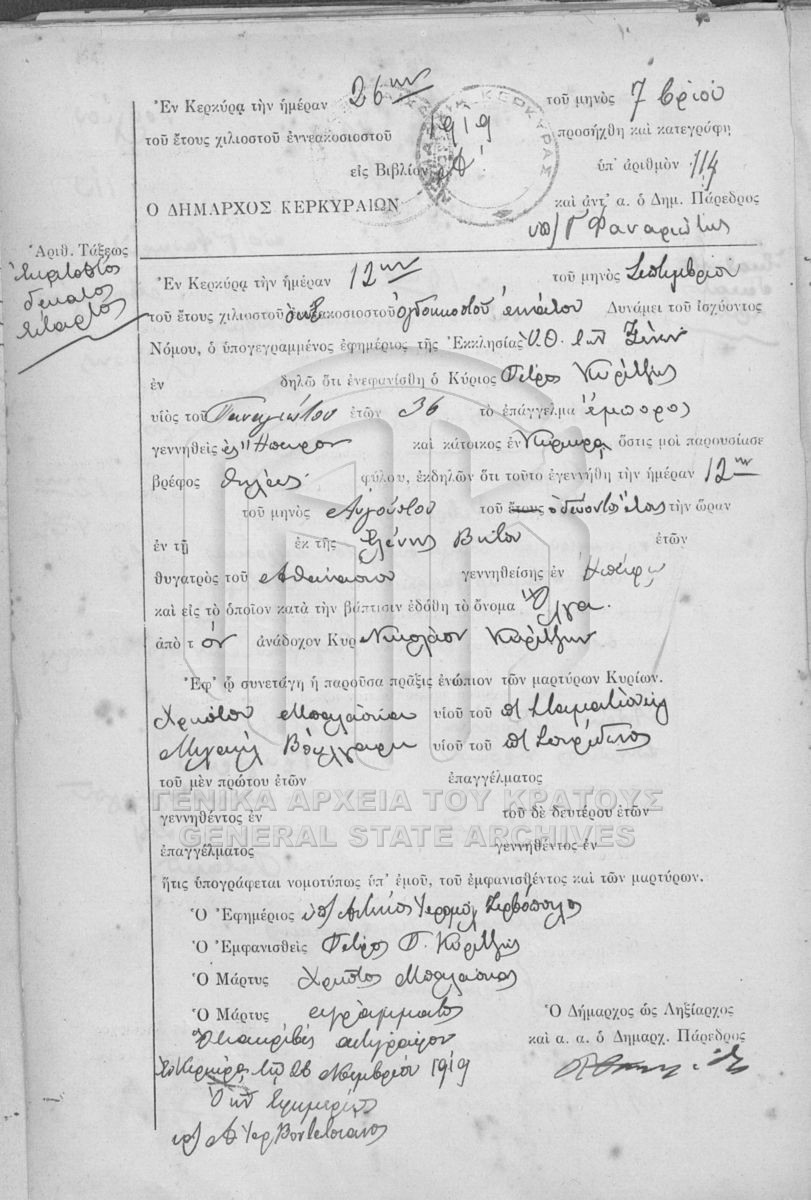 Ἐν Κερκύρᾳ τὴν ἡμέραν 26ην τοῦ μηνὸς 7βρίου
τοῦ ἔτους χιλιοστοῦ ἐννεακοσιοστοῦ 1919 προσήχθη καὶ κατεγράφη
εἰς Βιβλίον Α' ὑπ' ἀριθμὸν 114
Ο ΔΗΜΑΡΧΟΣ ΚΕΡΚΥΡΑΙΩΝ καὶ ἀντ' α. ὁ Δημ. Πάρεδρος
ΚΕΡΚΥΡΑΣ
υπ/ Γ Φαναριώτης
Ἀριθ. Τάξεως
δέκατος
τέταρτος
Ἐν Κερκύρᾳ τὴν ἡμέραν 12ην τοῦ μηνὸς Σεπτεμβρίου
τοῦ ἔτους χιλιοστοῦ ὀκτακοσιοστοῦ ὀγδοηκοστοῦ ἐννάτου Δυνάμει τοῦ ἰσχύοντος
Νόμου, ὁ ὑπογεγραμμένος ἐφημέριος τῆς Ἐκκλησίας Ὑ.Θ. τῶν Ξένων
ἐν δηλῶ ὅτι ἐνεφανίσθη ὁ Κύριος Πέτρος Κυρίτζης
υἱὸς τοῦ Παναγιώτου ἐτῶν 36 τὸ ἐπάγγελμα ἔμπορος
γεννηθεὶς εἰς Ἤπειρον καὶ κάτοικος ἐν Κέρκυρᾳ ὅστις μοὶ παρουσίασε
βρέφος θήλεος φύλου, ἐκδηλῶν ὅτι τοῦτο ἐγεννήθη τὴν ἡμέραν 12ην
τοῦ μηνὸς Αὐγούστου τοῦ ἔτους ὁδεύοντος ἔτους τὴν ὥραν
ἐν τῇ ἐκ τῆς Ἑλένης Βήτου ἐτῶν
θυγατρὸς τοῦ Ἀθανασίου γεννηθείσης ἐν Ἠπείρῳ
καὶ εἰς τὸ ὁποῖον κατὰ τὴν βάπτισιν ἐδόθη τὸ ὄνομα Ὄλγα.
ἀπὸ τ όν ἀνάδοχον Κυρ Νικόλαον Καρίτζην
Ἐφ' ᾧ συνετάγη ἡ παροῦσα πρᾶξις ἐνώπιον τῶν μαρτύρων Κυρίων.
Χρήστου Μπαλάσκα υἱοῦ τοῦ
Μιχαὴλ Βούλγαρη υἱοῦ τοῦ π Σπυρίδωνος
τοῦ μὲν πρώτου ἐτῶν ἐπαγγέλματος
γεννηθέντος ἐν τοῦ δὲ δευτέρου ἐτῶν
ἐπαγγέλματος γεννηθέντος ἐν
ΓΕΝΙΚΑ ΑΡΧΕΙΑ ΤΟΥ ΚΡΑΤΟΥΣ
GENERAL STATE ARCHIVES
ἥτις ὑπογράφεται νομοτύπως ὑπ' ἐμοῦ, τοῦ ἐμφανισθέντος καὶ τῶν μαρτύρων.
Ὁ Ἐφημέριος υπ/ Ἱερομ.
Ὁ Ἐμφανισθεὶς Πέτρος Π. Κυρίτζης
Ὁ Μάρτυς Χρῆστος Μπαλάσκας
Ὁ Μάρτυς ἀγράμματος Ὁ Δήμαρχος ὡς Ληξίαρχος
Ὅτι ἀκριβὲς ἀντίγραφον καὶ α. α. ὁ Δημαρχ. Πάρεδρος
Ἐν Κερκύρᾳ τῇ 26 Νοεμβρίου 1919
Ὁ Ἐφημέριος